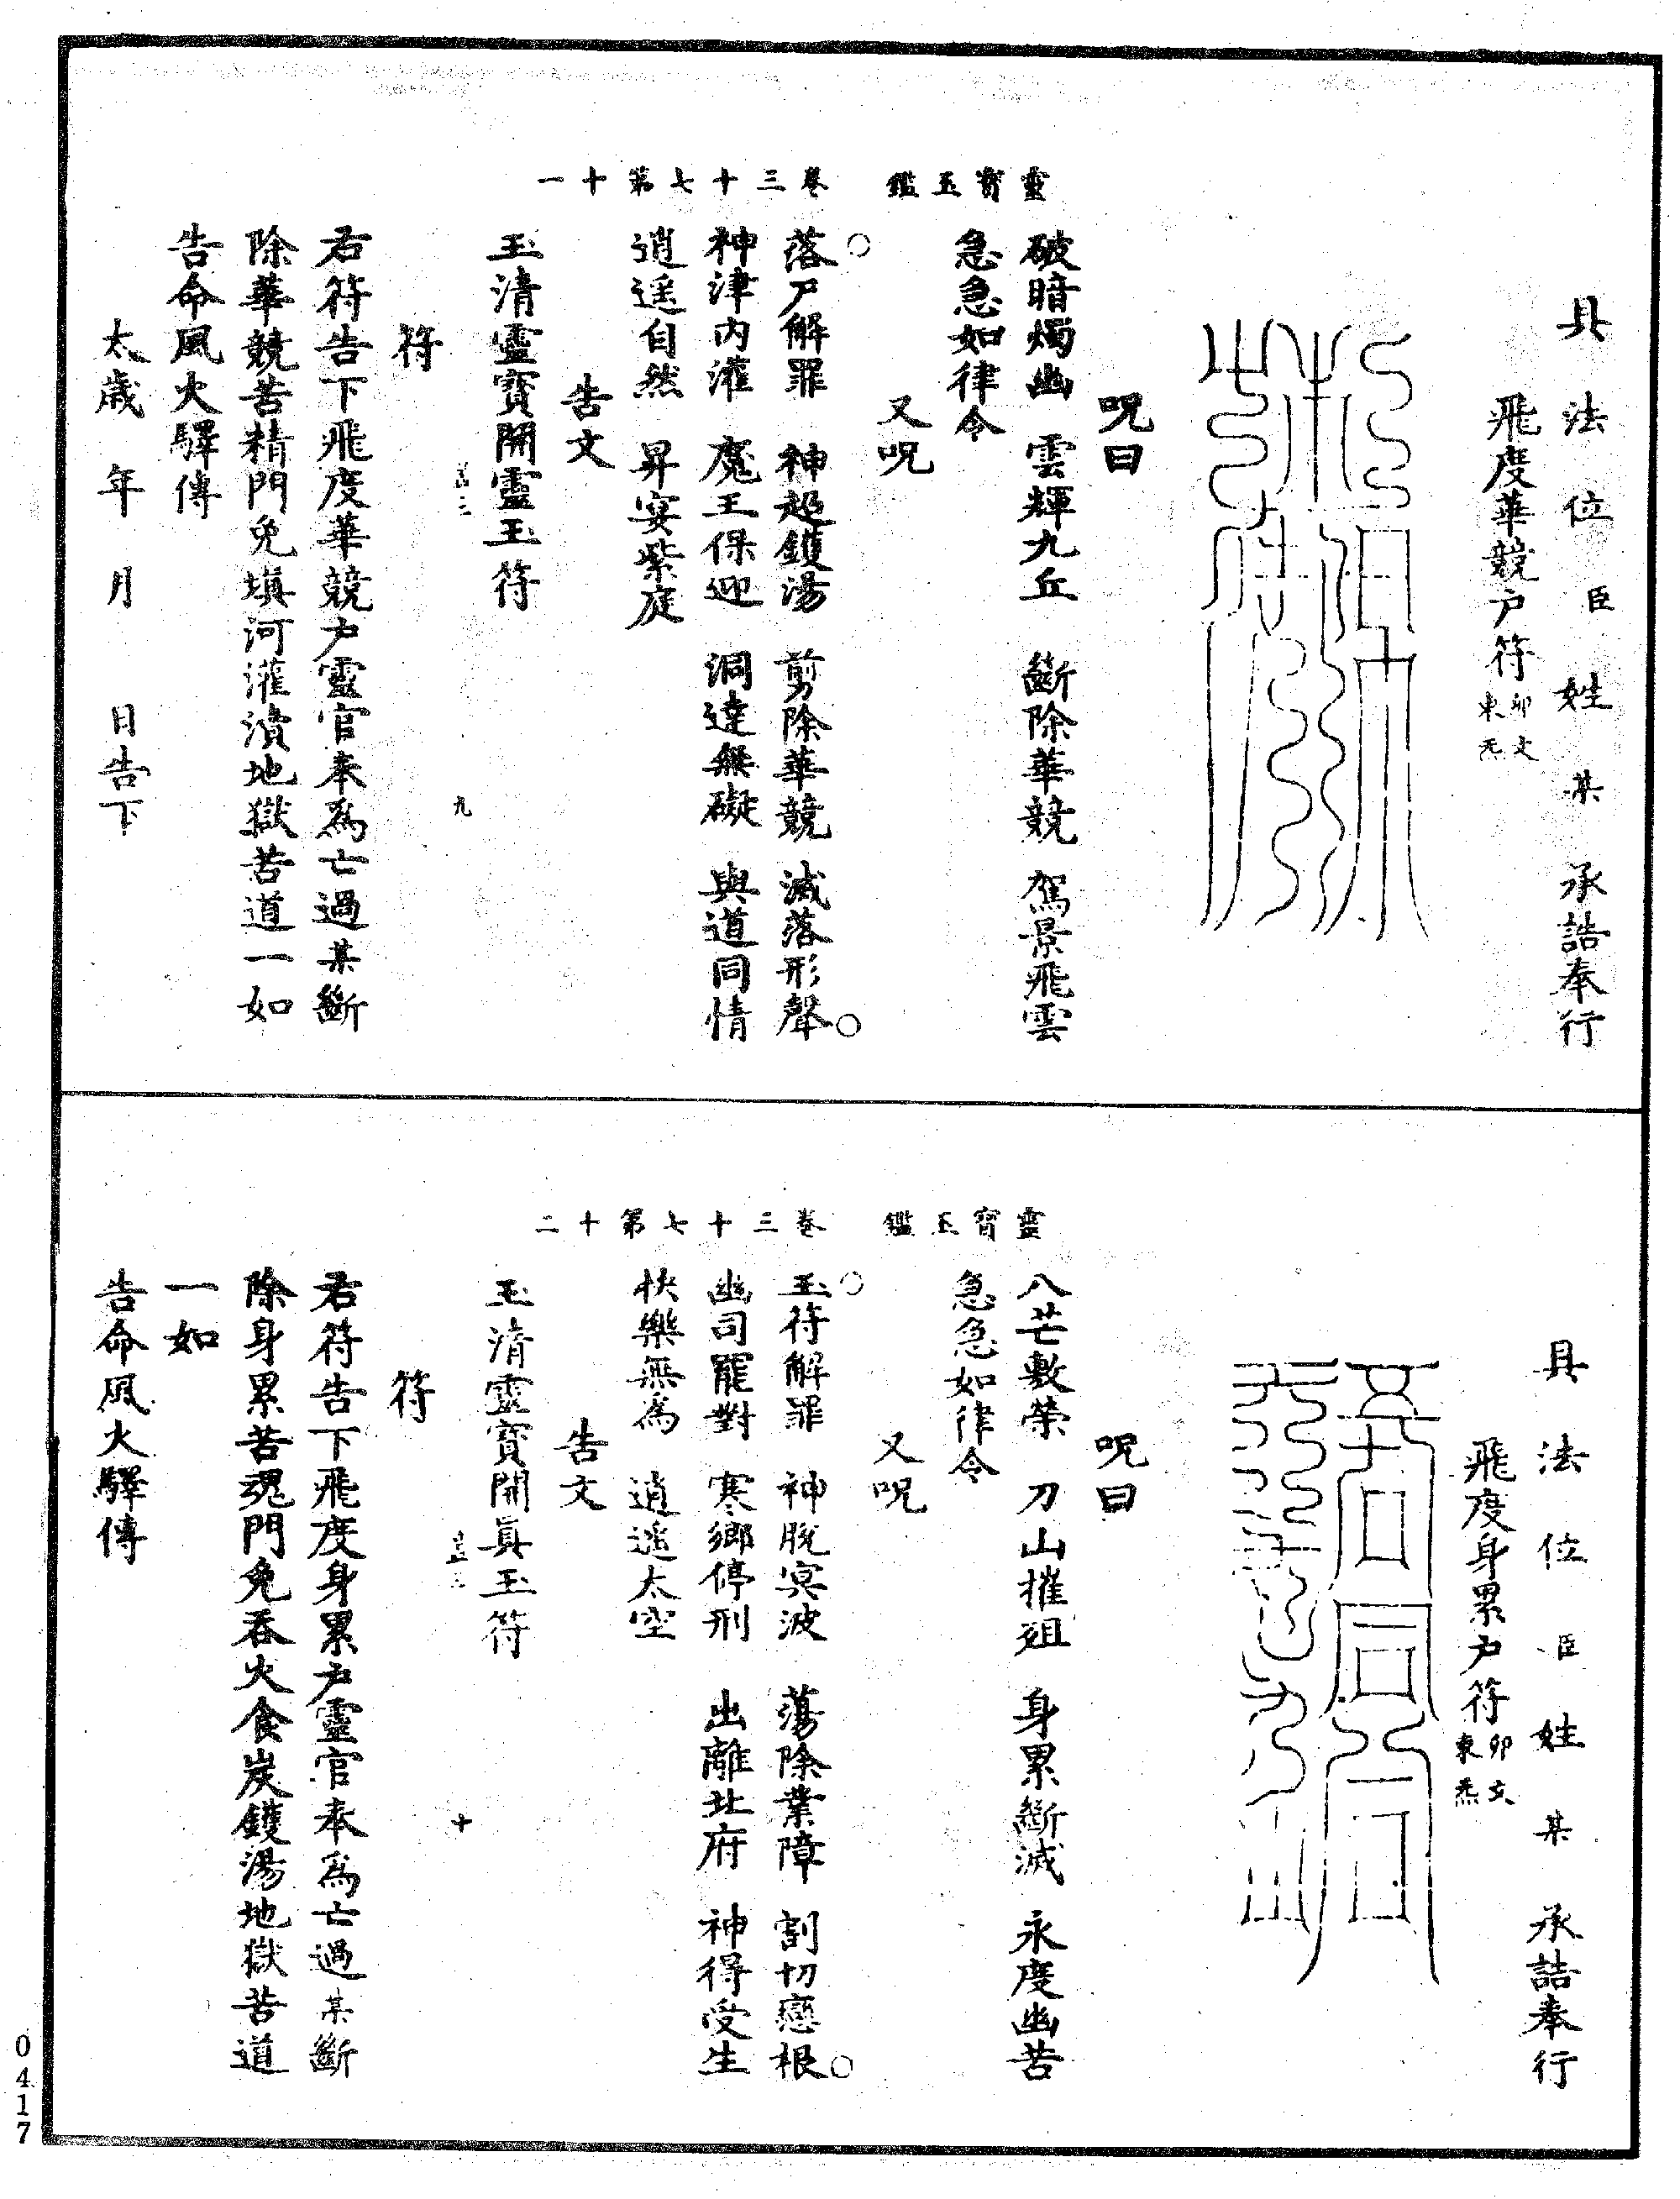 具法位臣姓某承誥奉行
飛度華競户符卯文東炁
呪曰
破暗燭幽　雲輝九丘　斷除華競　駕景飛雲
急急如律令
又呪
落户解罪　神超鑊湯　剪除華競　滅落形聲
神津内灌　魔王保迎　洞達無礙　與道同情
逍遥自然　昇宴紫庭
告文
玉清靈寳開靈玉符
九
符
君符告下飛度華競户靈官奉為亡過某斷
除華競苦精門免塡河灌瀆地獄苦道一如
告命風火驛傳
太歲　年　月　日告下
靈寳玉鑑　卷三十七第十一
具法位臣姓某承誥奉行
飛度身累户符卯文東炁
呪曰
八芒敷榮　刀山摧俎　身累斷滅　永度幽苦
急急如律令
又呪
玉符解罪　神脫冥波　蕩除業障　割切戀根
幽司罷對　寒鄉停刑　出離北府　神得受生
快樂無為　逍遥太空
告文
玉清靈寳開眞玉符
十
符
君符告下飛度身累户靈官奉為亡過某斷
除身累苦魂門免吞火食炭鑊湯地獄苦道
一如
告命風火驛傳
靈寳玉鑑　卷三十七第十二
0417